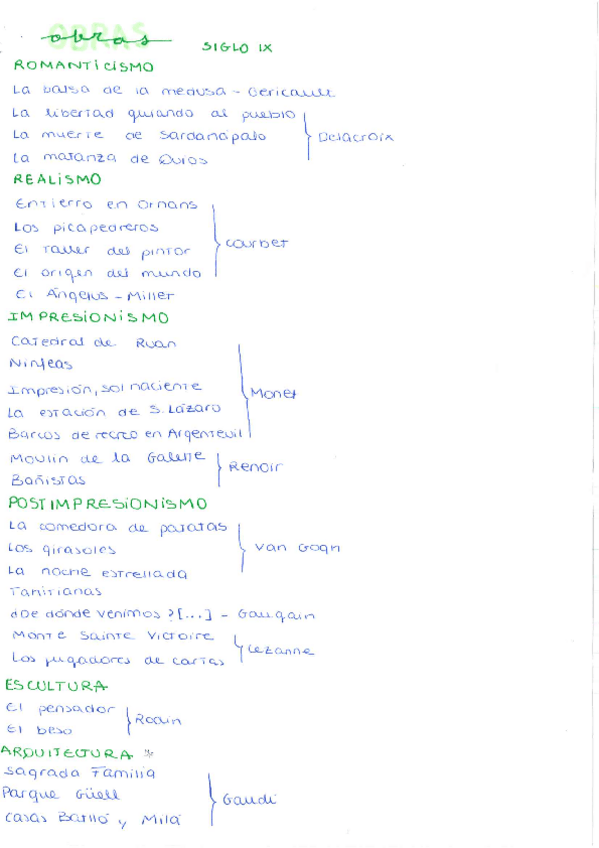 OBRAS
obras SIGLO IX
ROMANTICISMO
La balsa de la medusa - Gericault
La libertad guiando al pueblo
La muerte de Sardanápalo
Delacroix
La matanza de Quios
REALISMO
Entierro en Ornans
Los picapedreros
Courbet
El taller del pintor
El origen del mundo
El Ángelus - Millet
IMPRESIONISMO
Catedral de Ruan
Ninfeas
Impresión, sol naciente
Monet
La estación de S. Lázaro
Barcos de recreo en Argenteuil
Moulin de la Galette
Renoir
Bañistas
POSTIMPRESIONISMO
La comedora de patatas
Los girasoles
Van Gogh
La noche estrellada
Tahitianas
¿De dónde venimos? [...] - Gauguin
Monte Sainte Victoire
Cézanne
Los jugadores de cartas
ESCULTURA
El pensador
Rodin
El beso
ARQUITECTURA *
Sagrada Familia
Parque Güell
Gaudí
Casas Batlló y Milá